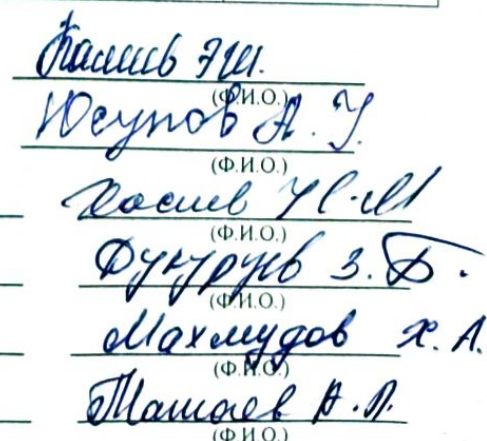 Калиев Э.Ш.
(Ф.И.О.)
Юсупов А. У.
(Ф.И.О.)
Хасиев
(Ф.И.О.)
З. Б.
(Ф.И.О.)
Махмудов Х. А.
(Ф.И.О.)
Ташаев А. Л.
(Ф.И.О.)